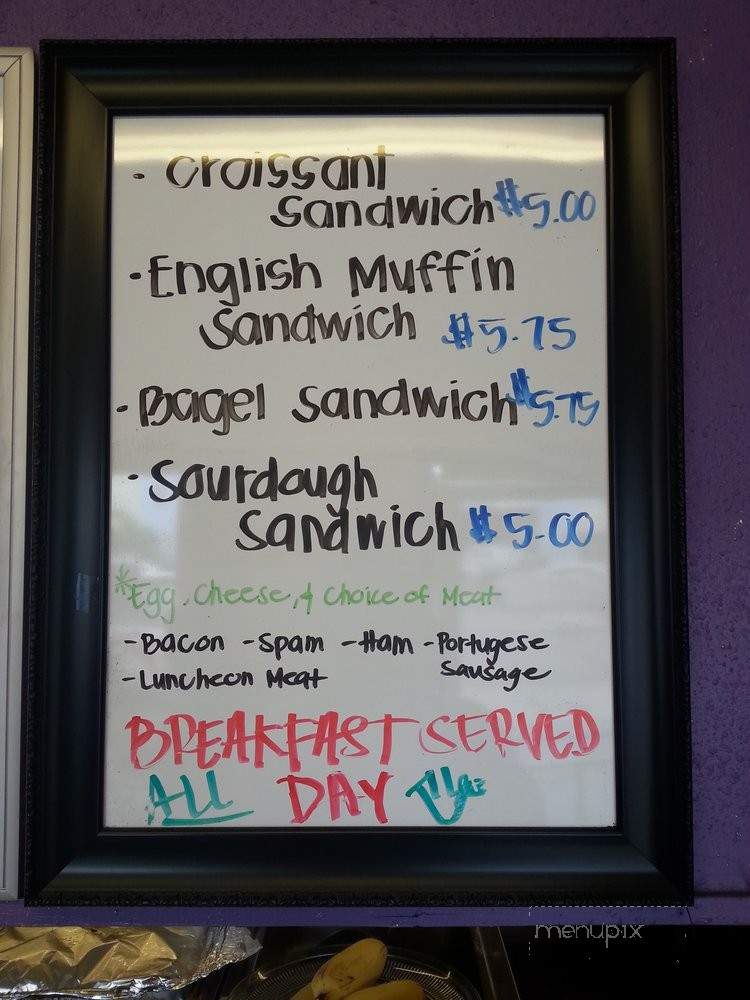 · Croissant
Sandwich $5.00
· English Muffin
Sandwich $5.75
· Bagel Sandwich $5.75
· Sourdough
Sandwich $5.00
*Egg, Cheese, & Choice of Meat
- Bacon - Spam - Ham - Portugese
Sausage
- Luncheon Meat
BREAKFAST SERVED
ALL DAY
menupix